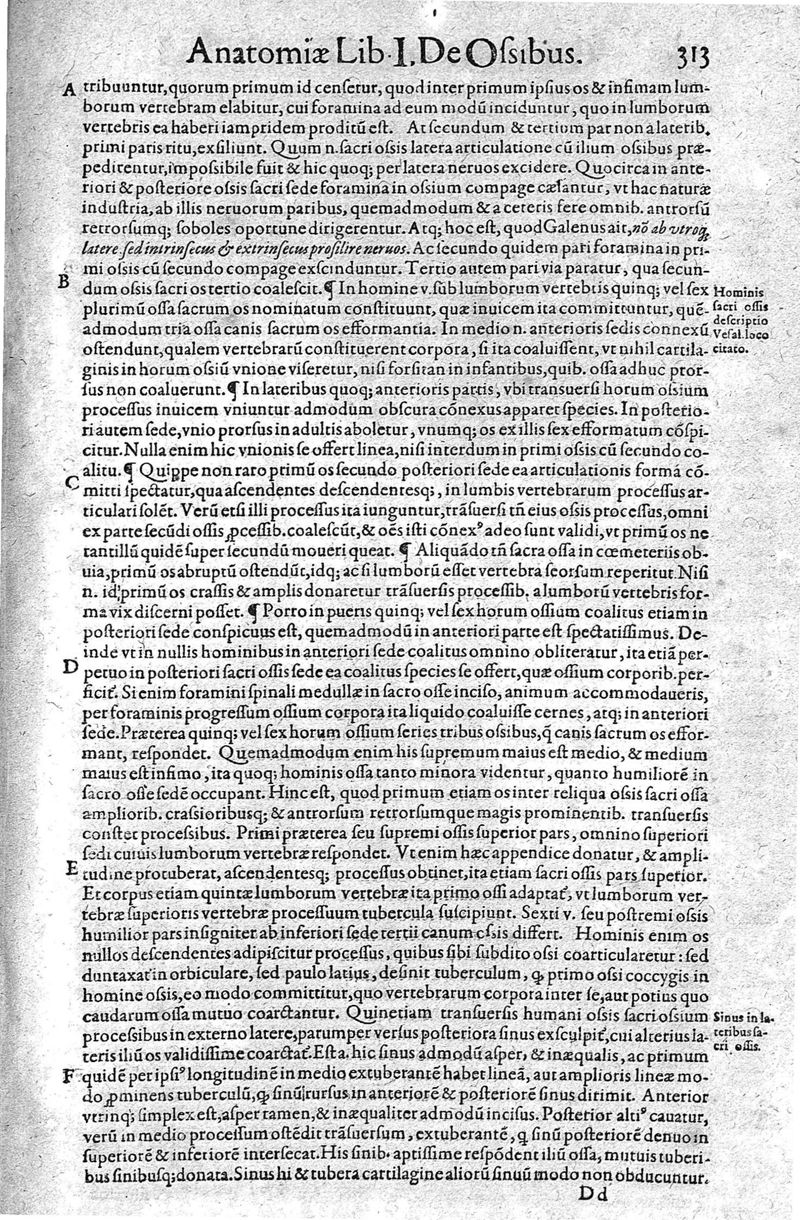 Anatomiæ Lib. I. De Ossibus. 313
A tribuuntur, quorum primum id censetur, quod inter primum ipsius os & infimam lum-
borum vertebram elabitur, cui foramina ad eum modū inciduntur, quo in lumborum
vertebris ea haberi iampridem proditū est. At secundum & tertium par non a laterib.
primi paris ritu, exsiliunt. Quum n. sacri ossis latera articulatione cū ilium ossibus præ-
pedirentur, impossibile fuit & hic quoq; per latera neruos excidere. Quocirca in ante-
riori & posteriore ossis sacri sede foramina in ossium compage cælantur, vt hac naturæ
industria, ab illis neruorum paribus, quemadmodum & a ceteris fere omnib. antrorsū
retrorsumq; soboles oportune dirigerentur. Atq; hoc est, quod Galenus ait, nō ab vtroq;
latere, sed intrinsecus & extrinsecus prosilire neruos. Ac secundo quidem pari foramina in pri-
mi ossis cū secundo compage exscinduntur. Tertio autem pari via paratur, qua secun-
B
dum ossis sacri os tertio coalescit. ¶ In homine v. sub lumborum vertebris quinq; vel sex
Hominis
plurimū ossa sacrum os nominatum constituunt, quæ inuicem ita committuntur, quē-
sacri ossis
descriptio
admodum tria ossa canis sacrum os efformantia. In medio n. anterioris sedis connexū
Vesal. loco
ostendunt, qualem vertebrarū constituerent corpora, si ita coaluissent, vt nihil cartila-
citato.
ginis in horum ossiū vnione viseretur, nisi forsitan in infantibus, quib. ossa adhuc pror-
sus non coaluerunt. ¶ In lateribus quoq; anterioris partis, vbi transuersi horum ossium
processus inuicem vniuntur admodum obscura cōnexus apparet species. In posterio-
ri autem sede, vnio prorsus in adultis aboletur, vnumq; os ex illis sex efformatum cōspi-
citur. Nulla enim hic vnionis se offert linea, nisi interdum in primi ossis cū secundo co-
alitu. ¶ Quippe non raro primū os secundo posteriori sede ea articulationis formā cō-
C
mitti spectatur, qua ascendentes descendentesq;, in lumbis vertebrarum processus ar-
ticulari solēt. Verū etsi illi processus ita iunguntur, trāsuersi tñ eius ossis processus, omni
ex parte secūdi ossis ꝓcessib. coalescūt, & oēs isti cōnexꝰ adeo sunt validi, vt primū os ne
tantillū quidē super secundū moueri queat. ¶ Aliquādo tñ sacra ossa in cœmeteriis ob-
uia, primū os abruptū ostendūt, idq; ac si lumborū esset vertebra seorsum reperitur. Nisi
n. id; primū os crassis & amplis donaretur trāsuersis processib. a lumborū vertebris for-
ma vix discerni posset. ¶ Porro in pueris quinq; vel sex horum ossium coalitus etiam in
posteriori sede conspicuus est, quemadmodū in anteriori parte est spectatissimus. De-
inde vt in nullis hominibus in anteriori sede coalitus omnino obliteratur, ita etiā per-
D
petuo in posteriori sacri ossis sede ea coalitus species se offert, quæ ossium corporib. per-
ficit͛. Si enim foramini spinali medullæ in sacro osse inciso, animum accommodaueris,
per foraminis progressum ossium corpora ita liquido coaluisse cernes, atq; in anteriori
sede. Præterea quinq; vel sex horum ossium series tribus ossibus, q̄ canis sacrum os effor-
mant, respondet. Quemadmodum enim his supremum maius est medio, & medium
maius est infimo, ita quoq; hominis ossa tanto minora videntur, quanto humiliorē in
sacro osse sedē occupant. Hinc est, quod primum etiam os inter reliqua ossis sacri ossa
amplioribb. crassioribusq; & antrorsum retrorsumque magis prominentib. transuersis
constet processibus. Primi præterea seu supremi ossis superior pars, omnino superiori
sedi cuiuis lumborum vertebræ respondet. Vt enim hæc appendice donatur, & ampli-
E
tudine protuberat, ascendentesq; processus obtinet, ita etiam sacri ossis pars superior.
Et corpus etiam quintæ lumborum vertebræ ita primo ossi adaptat͛, vt lumborum ver-
tebræ superioris vertebræ processuum tubercula suscipiunt. Sexti v. seu postremi ossis
humilior pars insigniter ab inferiori sede tertii canum ossis differt. Hominis enim os
nullos descendentes adipiscitur processus, quibus sibi subdito ossi coarticularetur: sed
duntaxat in orbiculare, sed paulo latius, desinit tuberculum, ꝙ primo ossi coccygis in
homine ossis, eo modo committitur, quo vertebrarum corpora inter se, aut potius quo
caudarum ossa mutuo coarctantur. Quinetiam transuersis humani ossis sacri ossium
Sinus in la-
processibus in externo latere, parumper versus posteriora sinus exsculpit͛, cui alterius la-
teribus sa-
teris iliū os validissime coarctat͛. Est a. hic sinus admodū asper, & inæqualis, ac primum
cri ossis.
F quidē per ipsiꝰ longitudinē in medio extuberante habet lineā, aut amplioris lineæ mo-
do ꝓminens tuberculū, ꝙ sinū rursus in anteriorē & posteriorē sinus dirimit. Anterior
vtrinq; simplex est, asper tamen, & inæqualiter admodū incisus. Posterior altiꝰ cauatur,
verū in medio processum ostēdit trāsuersum, extuberantē, ꝙ sinū posteriorē denuo in
superiorē & inferiorē intersecat. His sinib. aptissime respōdent iliū ossa, mutuis tuberi-
bus sinibusq; donata. Sinus hi & tubera cartilagine aliorū sinuū modo non obducuntur.
Dd